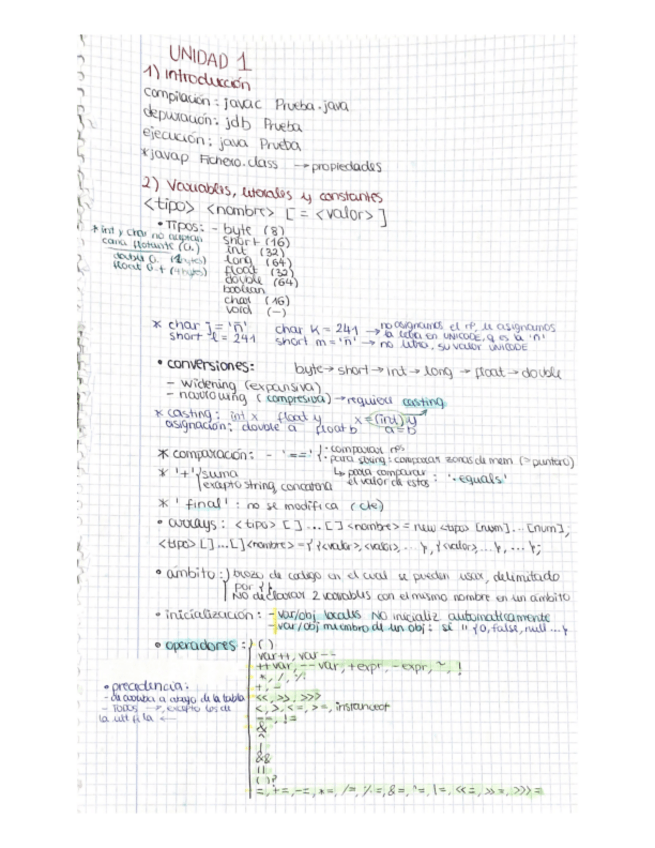 UNIDAD 1
1) Introducción
compilación: javac Prueba.java
depuración: jdb Prueba
ejecución: java Prueba
*javap Fichero.class → propiedades
2) Variables, literales y constantes
<tipo> <nombre> [= <valor>]
• Tipos: - byte (8)
short (16)
int (32)
long (64)
float (32)
double (64)
boolean
char (16)
void (-)
* int y char no aceptan
coma flotante (0.)
double 0.
float 0.f (4 bytes)
* char j = 'ñ' char k = 241 → no asignamos el nº, le asignamos
la letra en UNICODE, q es la 'ñ'
short l = 241 short m = 'ñ' → no letra, su valor UNICODE
• conversiones: byte → short → int → long → float → double
- widening (expansiva)
- narrowing (compresiva) → requiere casting
* casting: int x float y x = (int) y
asignación: double a float b a = b
* comparación: - '==' { · comparar nos
· para string: comparar zonas de mem (> puntero)
↳ para comparar
el valor de estos : '.equals'
* '+' { suma
excepto string, concatena
* 'final' : no se modifica (cte)
• arrays: <tipo> []...[] <nombre> = new <tipo> [num]...[num];
<tipo> []...[] <nombre> = { {<valor>, <valor>, ... }, {<valor>, ... }, ... };
• ámbito: } trozo de código en el cual se pueden usar, delimitado
por { }
NO declarar 2 variables con el mismo nombre en un ámbito
• inicialización: - var/obj locales NO inicializ automáticamente
- var/obj miembro de un obj: sí " {0, false, null ...}
• operadores: } ( )
var++, var--
++var, --var, +expr, -expr, ~, !
*, /, %
+, -
<<, >>, >>>
<, >, <=, >=, instanceof
==, !=
&
^
|
&&
||
( )?
=, +=, -=, *=, /=, %=, &=, ^=, |=, <<=, >>=, >>>=
• precedencia:
- de arriba a abajo de la tabla
- Todos →, excepto los de
la ult fila ←